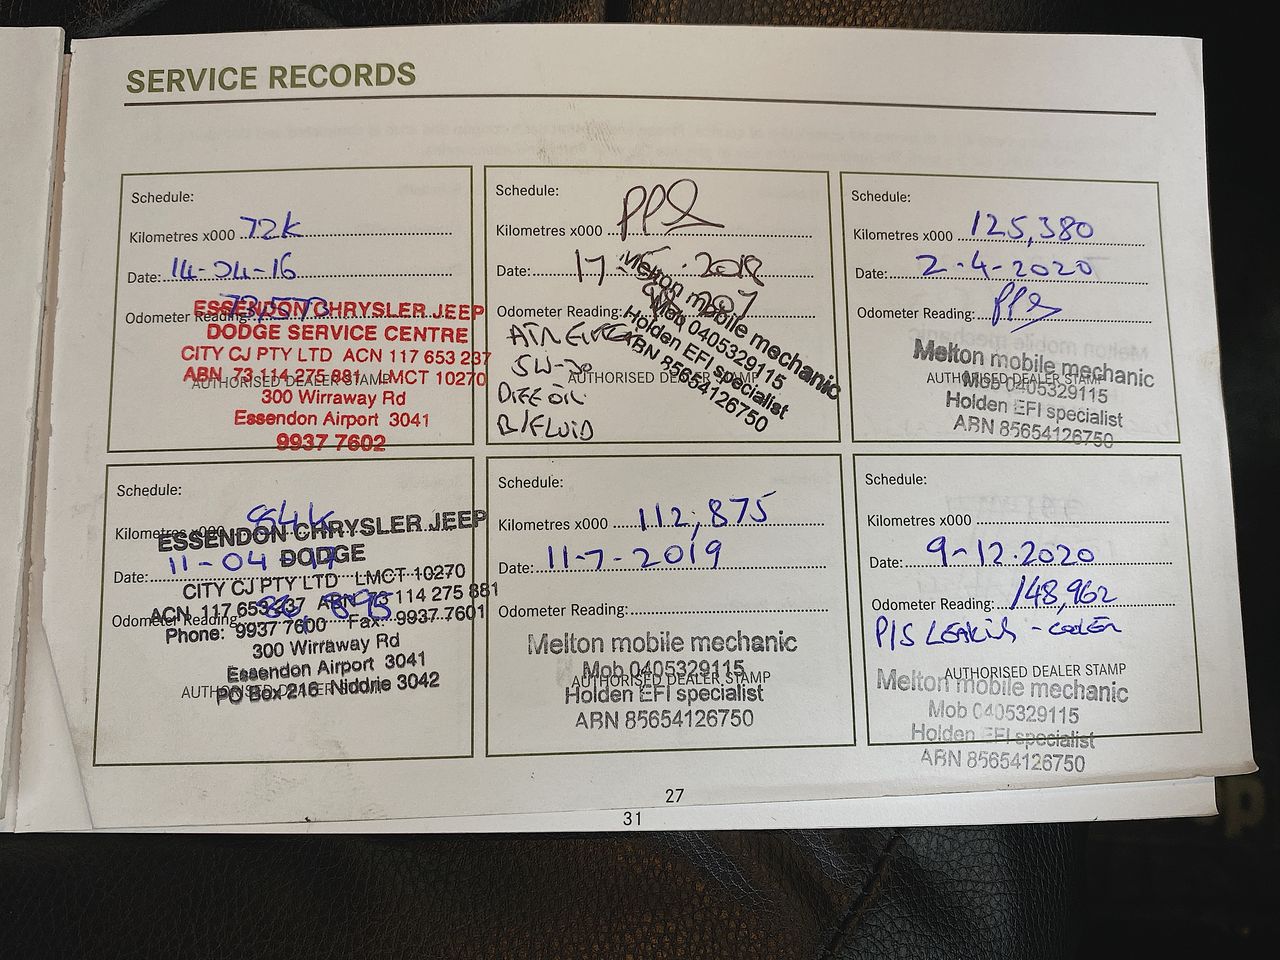 SERVICE RECORDS
Schedule:
Kilometres x000 72k
Date: 14-04-16
Odometer Reading: 73,573
ESSENDON CHRYSLER JEEP
DODGE SERVICE CENTRE
CITY CJ PTY LTD ACN 117 653 237
ABN 73 114 275 881 LMCT 10270
AUTHORISED DEALER STAMP
300 Wirraway Rd
Essendon Airport 3041
9937 7602
Schedule:
Kilometres x000
Date: 17- . 2018
Odometer Reading:
AIR
5W-30
DIFF OIL
B/FLUID
AUTHORISED DEALER STAMP
Melton mobile mechanic
Mob 0405329115
Holden EFI specialist
ABN 85654126750
Schedule:
Kilometres x000 125,380
Date: 2-4-2020
Odometer Reading:
Melton mobile mechanic
AUTHORISED DEALER STAMP
Mob 0405329115
Holden EFI specialist
ABN 85654126750
Schedule:
Kilometres x000 84k
ESSENDON CHRYSLER JEEP
DODGE
Date: 11-04-17
CITY CJ PTY LTD LMCT 10270
ACN 117 653 237 ABN 73 114 275 881
Odometer Reading: 86,895
Phone: 9937 7600 Fax: 9937 7601
300 Wirraway Rd
Essendon Airport 3041
AUTHORISED DEALER STAMP
PO Box 216 Niddrie 3042
Schedule:
Kilometres x000 112,875
Date: 11-7-2019
Odometer Reading:
Melton mobile mechanic
Mob 0405329115
AUTHORISED DEALER STAMP
Holden EFI specialist
ABN 85654126750
Schedule:
Kilometres x000
Date: 9-12.2020
Odometer Reading: 148,962
P/S LEAKING - COOLER
AUTHORISED DEALER STAMP
Melton mobile mechanic
Mob 0405329115
Holden EFI specialist
ABN 85654126750
27
31